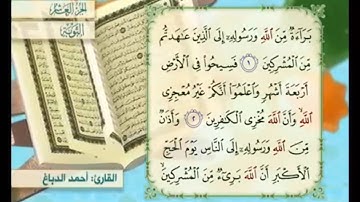 الجزء العاشر
التوبة
بَرَاءَةٌ مِّنَ اللَّهِ وَرَسُولِهِ إِلَى الَّذِينَ عَاهَدتُّم
مِّنَ الْمُشْرِكِينَ ١ فَسِيحُوا فِي الْأَرْضِ
أَرْبَعَةَ أَشْهُرٍ وَاعْلَمُوا أَنَّكُمْ غَيْرُ مُعْجِزِي
اللَّهِ وَأَنَّ اللَّهَ مُخْزِي الْكَافِرِينَ ٢ وَأَذَانٌ
مِّنَ اللَّهِ وَرَسُولِهِ إِلَى النَّاسِ يَوْمَ الْحَجِّ
الْأَكْبَرِ أَنَّ اللَّهَ بَرِيءٌ مِّنَ الْمُشْرِكِينَ
القارئ: أحمد الدباغ